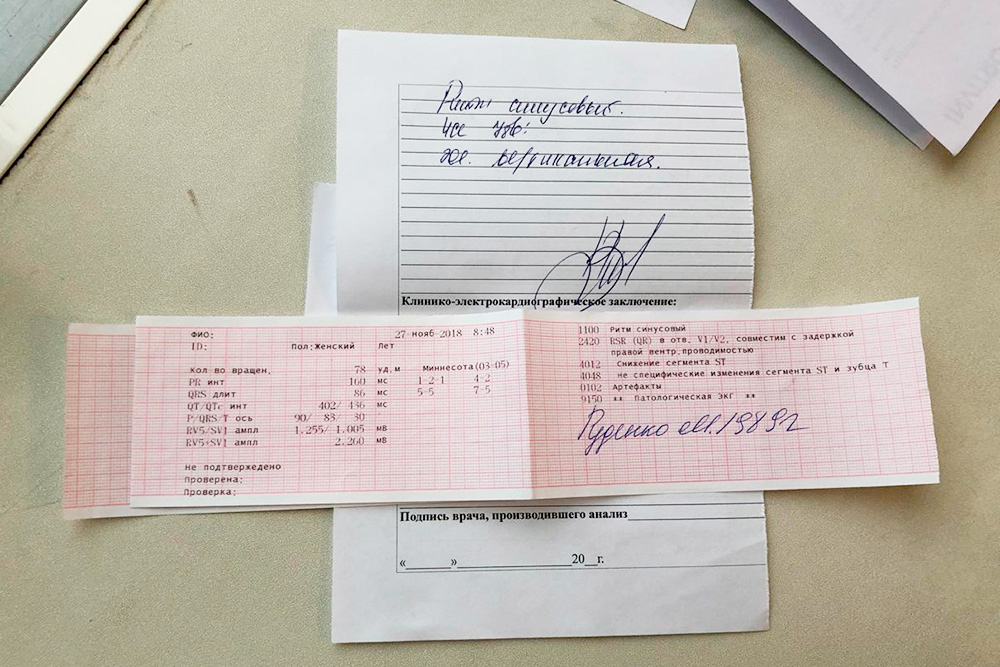 Ритм синусовый.
ЧСС 78в!
вертикальная.
Клинико-электрокардиографическое заключение:
ФИО:
27-нояб-2018 8:48
ID:
Пол:Женский Лет
Кол во вращен, 78 уд.м Миннесота(03-05)
PR инт 160 мс 1-2-1 4-2
QRS длит 86 мс 5-5 7-5
QT/QTc инт 402/ 436 мс
P/QRS/T ось 90/ 83/ 30
RV5/SV1 ампл 1.255/ 1.005 мВ
RV5+SV1 ампл 2.260 мВ
Не подтвержедено
Проверена:
Проверка:
1100 Ритм синусовый
2420 RSR (QR) в отв. V1/V2, совместим с задержкой
правой вентр.проводимостью
4012 Снижение сегмента ST
4048 не специфические изменения сегмента ST и зубца T
0102 Артефакты
9150 ** Патологическая ЭКГ **
Руденко М. 1989г
Подпись врача, производившего анализ
« » 20 г.